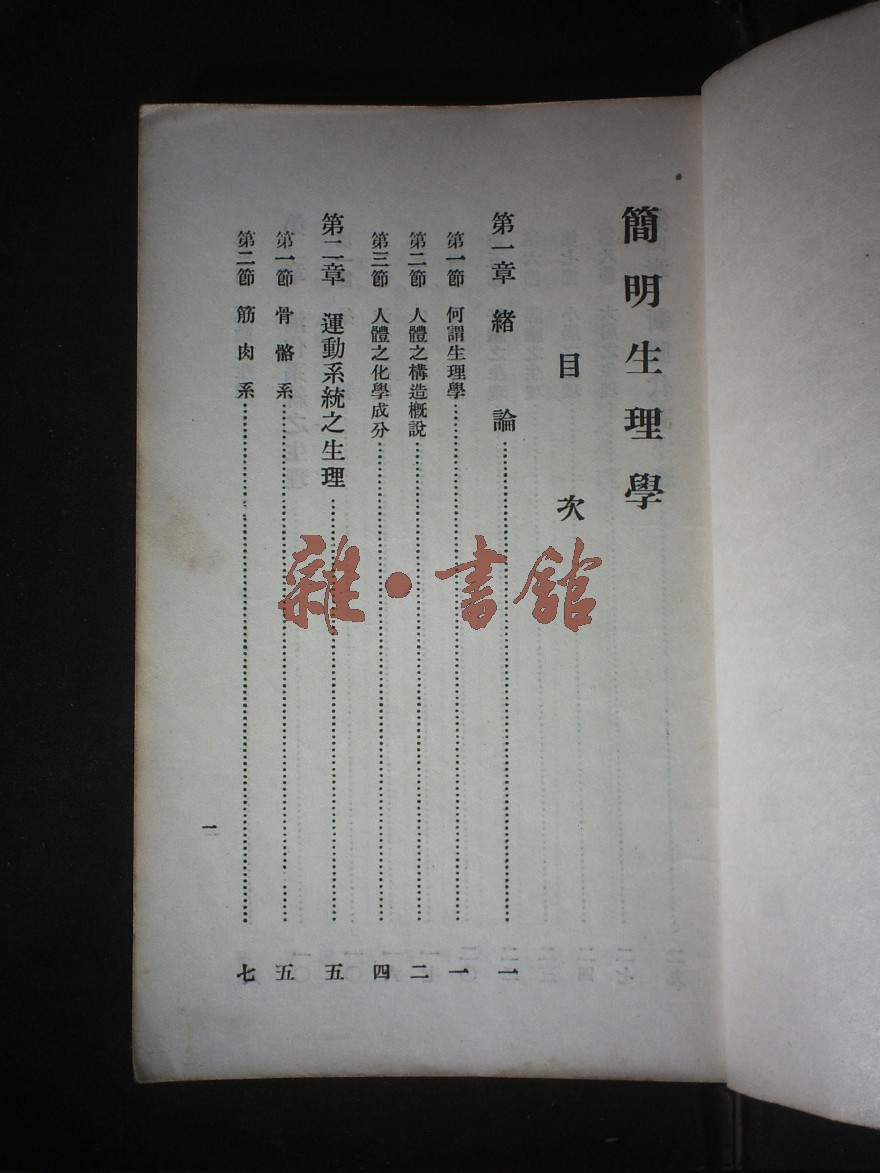 簡明生理學
目次
第一章 緒論……一
第一節 何謂生理學……一
第二節 人體之構造概說……二
第三節 人體之化學成分……四
第二章 運動系統之生理……五
第一節 骨骼系……五
第二節 筋肉系……七
一
雜·書館